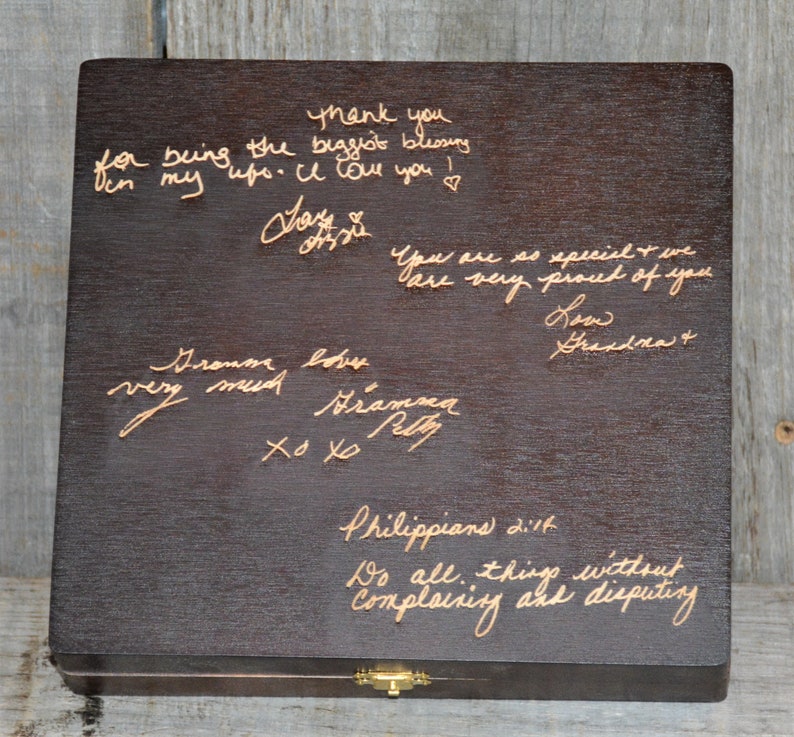 Thank you
for being the biggest blessing
in my life. I love you!
Love
Lizzie
You are so special & we
are very proud of you
Love
Grandma &
Gramma loves
very much
Gramma
Patty
XO XO
Philippians 2:14
Do all things without
complaining and disputing